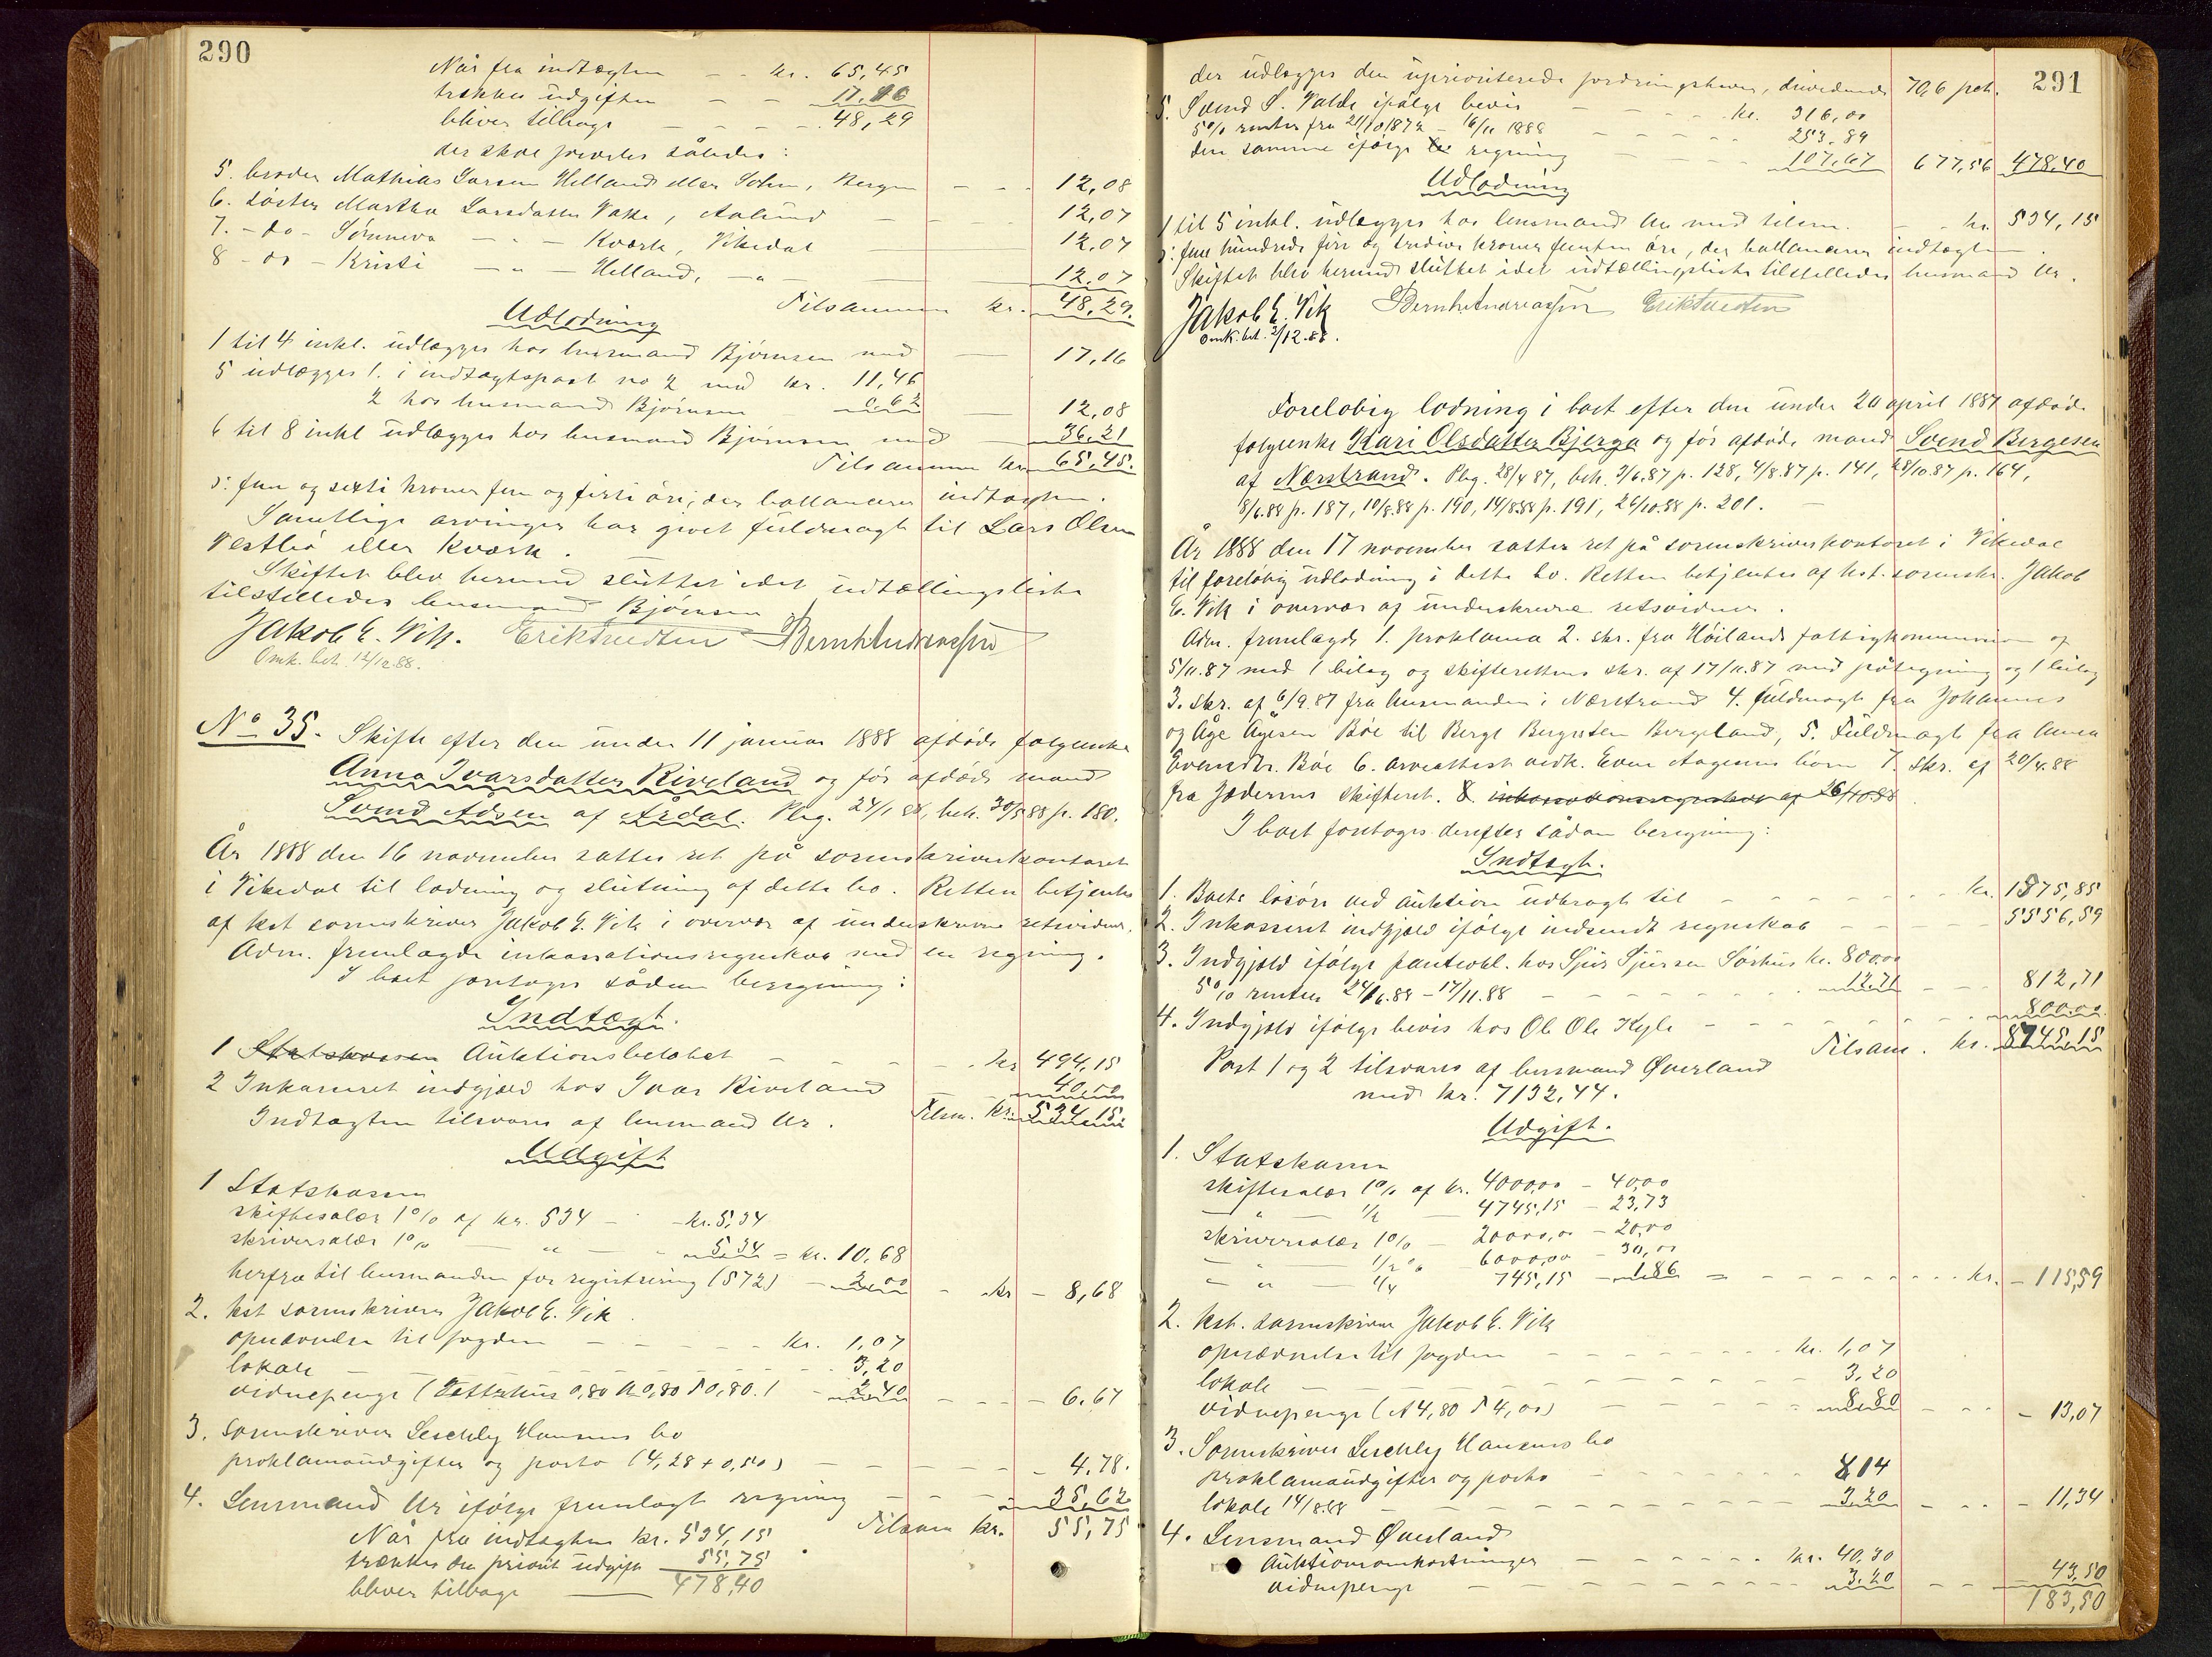 290
Når fra indtægten — - kr. 65,45
trækkes udgiften — - 17.16
bliver tilbage — - - - 48,29
der skal fordeles således:
5. broder Mathias Larsen Helland eller Sohm, Bergen — - - 12,08
6. søster Martha Larsdatter Vatke, Aalund — 12,07
7. - do - Sønneva — - — Kværk, Vikedal — 12,07
8 - do - Kristi — „ — Helland, — „ — 12,07
Tilsammen kr. 48,29.
Udlodning
1 til 4 inkl. udlægges hos lensmand Bjørnsen med — 17,16
5 udlægges 1. i indtægtspost no 2 med kr. 11,46
2 hos lensmand Bjørnsen - 0.62 — 12,08
6 til 8 inkl udlægges hos lensmand Bjørnsen med — 36,21
Tilsammen kr. 65,45.
ɔ: fem og sexti kroner fem og firti øre, der ballancerer indtægten.
Samtlige arvinger har givet fuldmagt til Lars Olsen
Vestbø eller Kværk.
Skiftet blev hermed sluttet idet udtællingsliste
tilstilledes lensmand Bjørnsen
Jakob E. Vik. Erik Tvedten Bernh Andreassen
Omk. bet. 12/12.88.
No 35. Skifte efter den under 11 januar 1888 afdøde følgenke
Anna Ivarsdatter Riveland og før afdøde mand
Svend Aasen af Årdal. Reg. 24/1 88, beh. 30/5 88 p. 180.
År 1888 den 16 november sattes ret på sorenskriverkontoret
i Vikedal til lodning og slutning af dette bo. Retten betjentes
af kst sorenskriver Jakob E. Vik i overvær af underskrevne retsvidner.
Adm. fremlagde inkassationsregnskab med en regning.
I boet foretoges sådan beregning:
Indtægt.
1 Statskassen Auktionsbeløbet — - - - kr 494,15
2 Inkasseret indgjæld hos Ivar Riveland 40,00
Indtægten tilsvares af lensmand Ur. Tilsm. kr. 534,15.
Udgift
1 Statskassen
skiftesalær 1% af kr. 534 - - kr. 5,34
skriversalær 1% — „ — - 5,34 = kr. 10,68
herfra til lensmanden for registrering (572) - 2,00 - kr - 8,68
2. kst sorenskriver Jakob E. Vik
opnævnelse til fogden — - - - kr. 1,07
lokale — - - - 3,20
vidnepenge (Tøttehus 0,80 A 0,80 T 0,80.) - 2,40 - - - 6.67
3. Sorenskriver Leschly Hansens bo
proklamaudgifter og porto (4,28 + 0,50) — - - - 4.78.
4. Lensmand Ur ifølge fremlagt regning - - - 35,62
Tilsam kr. 55,75
Når fra indtægten kr. 534,15
trækkes den priorit udgift 55,75
bliver tilbage — 478,40
291
der udlægges den uprioriterede fordringshaver, dividende 70,6 pct.
5. Svend S. Valde ifølge bevis — - - kr. 316,00
5% renter fra 21/10 1872 - 16/11 1888 - - - 253,89
den samme ifølge regning — - - 107,67 677,56 478,40
Udlodning
1 til 5 inkl. udlægges hos lensmand Ur med tilsm. - - kr. 534,15
ɔ: fem hundrede fire og tredive kroner femten øre, der ballancerer indtægten.
Skiftet blev hermed sluttet idet udtællingsliste tilstilledes lensmand Ur.
Jakob E. Vik Bernh Andreassen Erik Tvedten
Omk. bet. 3/12.88.
Foreløbig lodning i boet efter den under 20 april 1887 afdøde
følgeenke Kari Olsdatter Bjerga og før afdøde mand Svend Bergesen
af Nærstrand. Reg. 28/4 87, beh. 2/6.87 p. 128, 4/8.87 p. 141, 28/10.87 p. 164,
8/6.88 p. 187, 10/8.88 p. 190, 14/8 88 p. 191, 26/10.88 p. 201.
År 1888 den 17 november sattes ret på sorenskriverkontoret i Vikedal
til foreløbig udlodning i dette bo. Retten betjentes af kst. sorenskr. Jakob
E. Vik i overvær af underskrevne retsvidner.
Adm. fremlagde 1. proklama 2. skr. fra Høilands fattigkommission af
5/11.87 med 1 bilag og skifterettens skr. af 17/11.87 med påtegning og 1 bilag
3. Skr. af 6/9.87 fra lensmanden i Nærstrand 4. fuldmagt fra Johannes
og Åge Ågesen Bøe til Berge Bergesen Bergeland, 5. Fuldmagt fra Anna
Evensdtr. Bøe 6. arveattest vedk. Even Aagesens børn 7. Skr. af 20/4.88
fra Jæderens skifteret. 8. inkassationsregnskab af 26/10.88
I boet foretoges derefter sådan beregning:
Indtægt.
1. Boets løsøre ved auktion udbragt til - - - kr. 1575,85
2. Inkasseret indgjæld ifølge indsendt regnskab - - - 5556,59
3. Indgjæld ifølge panteobl. hos Sjur Sjursen Sørhus kr. 800,00
5% renter 24/6.88 - 17/11.88 - - - 12.71 - - - 812,71
4. Indgjæld ifølge bevis hos Ole Ols Kyle - - - 800.00
Tilsam. kr. 8745,15
Post 1 og 2 tilsvares af lensmand Øverland
med kr. 7132,44.
Udgift.
1. Statskassen
skiftesalær 1% af kr. 4000,00 - 40,00
— „ — 1/2 — 4745,15 - 23,73
skriversalær 1% — 2000,00 - 20,00
— „ — 1/2 % 6000,00 - 30,00
— „ — 1/4 745,15 - 1,86 = - - - kr. - 115,59
2. kst. sorenskriver Jakob E. Vik
opnævnelse til fogden - - - kr. 1,07
lokale — - - - 3,20
vidnepenge (A 4,80 T 4,00) - - - 8,80 - - - 13,07
3. Sorenskriver Leschly Hansens bo
proklamaudgifter og porto - - - 8,14
lokale 14/8.88 — - - 3.20 - - - 11,34
4. Lensmand Øverland
Auktionsomkostninger - - - kr. 40,30
vidnepenge — - - - 3.20 - - 43,50
183,50